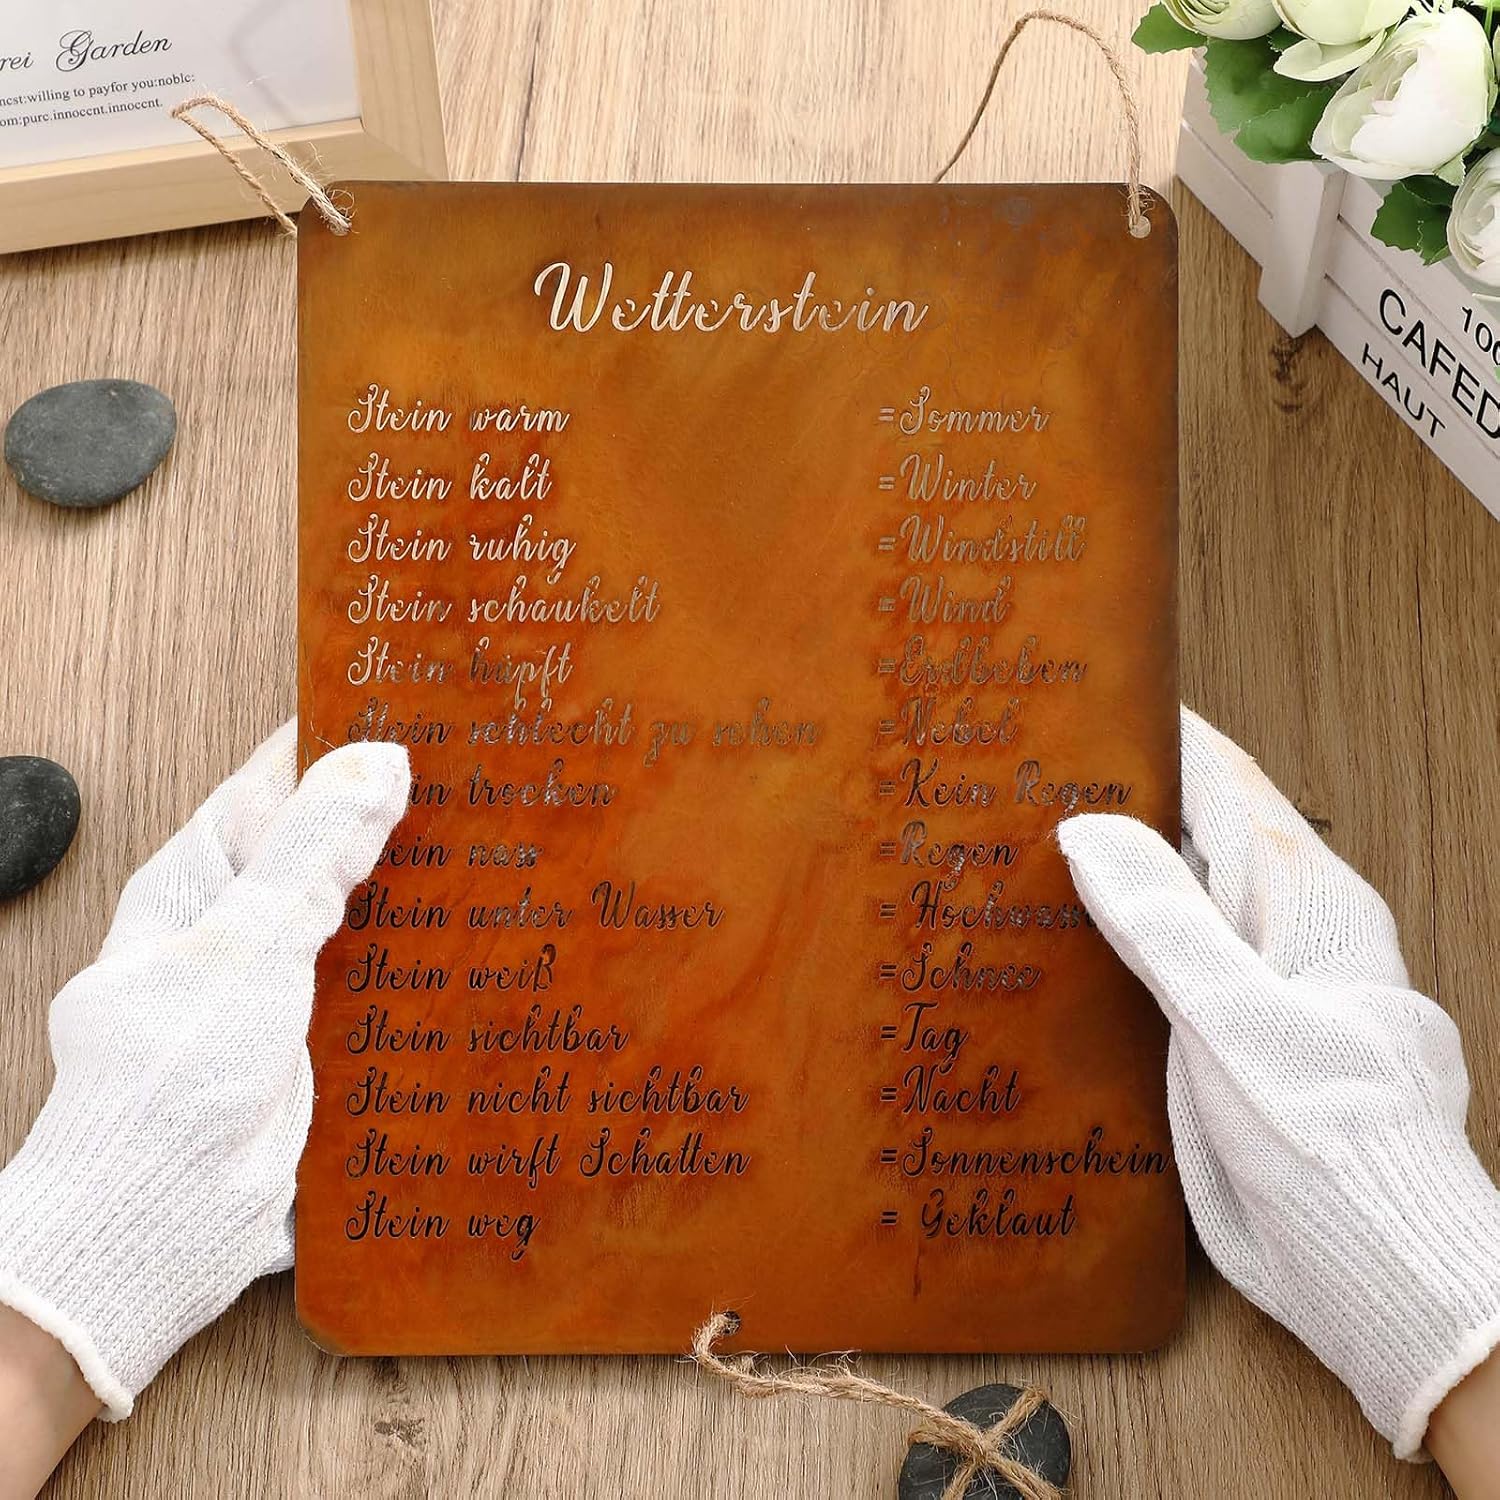 rei Garden
ncst:willing to payfor you:noblc:
om:purc.innoccnt.innoccnt.
Wetterstein
Stein warm =Sommer
Stein kalt =Winter
Stein ruhig =Windstill
Stein schaukelt =Wind
Stein hüpft =Erdbeben
Stein schlecht zu sehen =Nebel
in trocken =Kein Regen
tein nass =Regen
Stein unter Wasser = Hochwass
Stein weiß =Schnee
Stein sichtbar =Tag
Stein nicht sichtbar =Nacht
Stein wirft Schatten =Sonnenschein
Stein weg = Geklaut
100
CAFED
HAUT